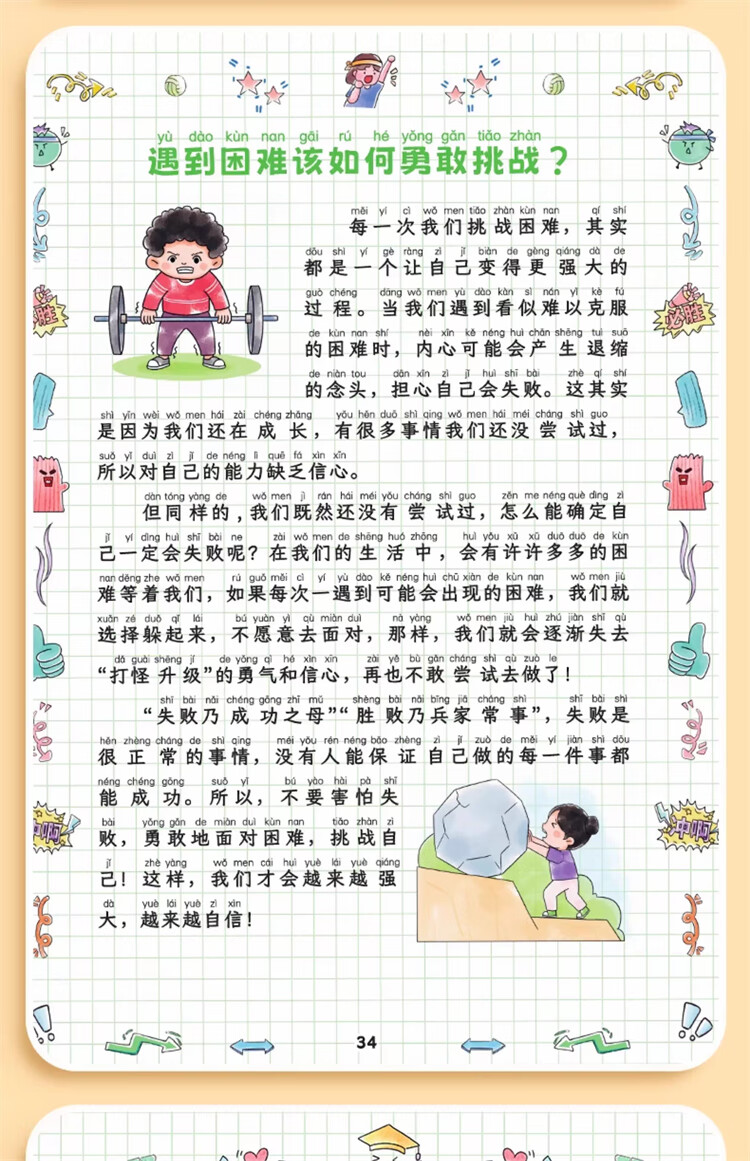 yù dào kùn nan gāi rú hé yǒng gǎn tiǎo zhàn
遇到困难该如何勇敢挑战？
měi yí cì wǒ men tiǎo zhàn kùn nan qí shí
每一次我们挑战困难，其实
dōu shì yí gè ràng zì jǐ biàn de gèng qiáng dà de
都是一个让自己变得更强大的
guò chéng dāng wǒ men yù dào kàn sì nán yǐ kè fú
过程。当我们遇到看似难以克服
de kùn nan shí nèi xīn kě néng huì chǎn shēng tuì suō
的困难时，内心可能会产生退缩
de niàn tou dān xīn zì jǐ huì shī bài zhè qí shí
的念头，担心自己会失败。这其实
shì yīn wèi wǒ men hái zài chéng zhǎng yǒu hěn duō shì qing wǒ men hái méi cháng shì guo
是因为我们还在成长，有很多事情我们还没尝试过，
suǒ yǐ duì zì jǐ de néng lì quē fá xìn xīn
所以对自己的能力缺乏信心。
dàn tóng yàng de wǒ men jì rán hái méi yǒu cháng shì guo zěn me néng què dìng zì
但同样的，我们既然还没有尝试过，怎么能确定自
jǐ yí dìng huì shī bài ne zài wǒ men de shēng huó zhōng huì yǒu xǔ xǔ duō duō de kùn
己一定会失败呢？在我们的生活中，会有许许多多的困
nan děng zhe wǒ men rú guǒ měi cì yí yù dào kě néng huì chū xiàn de kùn nan wǒ men jiù
难等着我们，如果每次一遇到可能会出现的困难，我们就
xuǎn zé duǒ qǐ lái bú yuàn yì qù miàn duì nà yàng wǒ men jiù huì zhú jiàn shī qù
选择躲起来，不愿意去面对，那样，我们就会逐渐失去
dǎ guài shēng jí de yǒng qì hé xìn xīn zài yě bù gǎn cháng shì qù zuò le
“打怪升级”的勇气和信心，再也不敢尝试去做了！
shī bài nǎi chéng gōng zhī mǔ shèng bài nǎi bīng jiā cháng shì shī bài shì
“失败乃成功之母”“胜败乃兵家常事”，失败是
hěn zhèng cháng de shì qing méi yǒu rén néng bǎo zhèng zì jǐ zuò de měi yí jiàn shì dōu
很正常的事情，没有人能保证自己做的每一件事都
néng chéng gōng suǒ yǐ bú yào hài pà shī
能成功。所以，不要害怕失
bài yǒng gǎn de miàn duì kùn nan tiǎo zhàn zì
败，勇敢地面对困难，挑战自
jǐ zhè yàng wǒ men cái huì yuè lái yuè qiáng
己！这样，我们才会越来越强
dà yuè lái yuè zì xìn
大，越来越自信！
胜
必胜
冲啊
冲啊
34